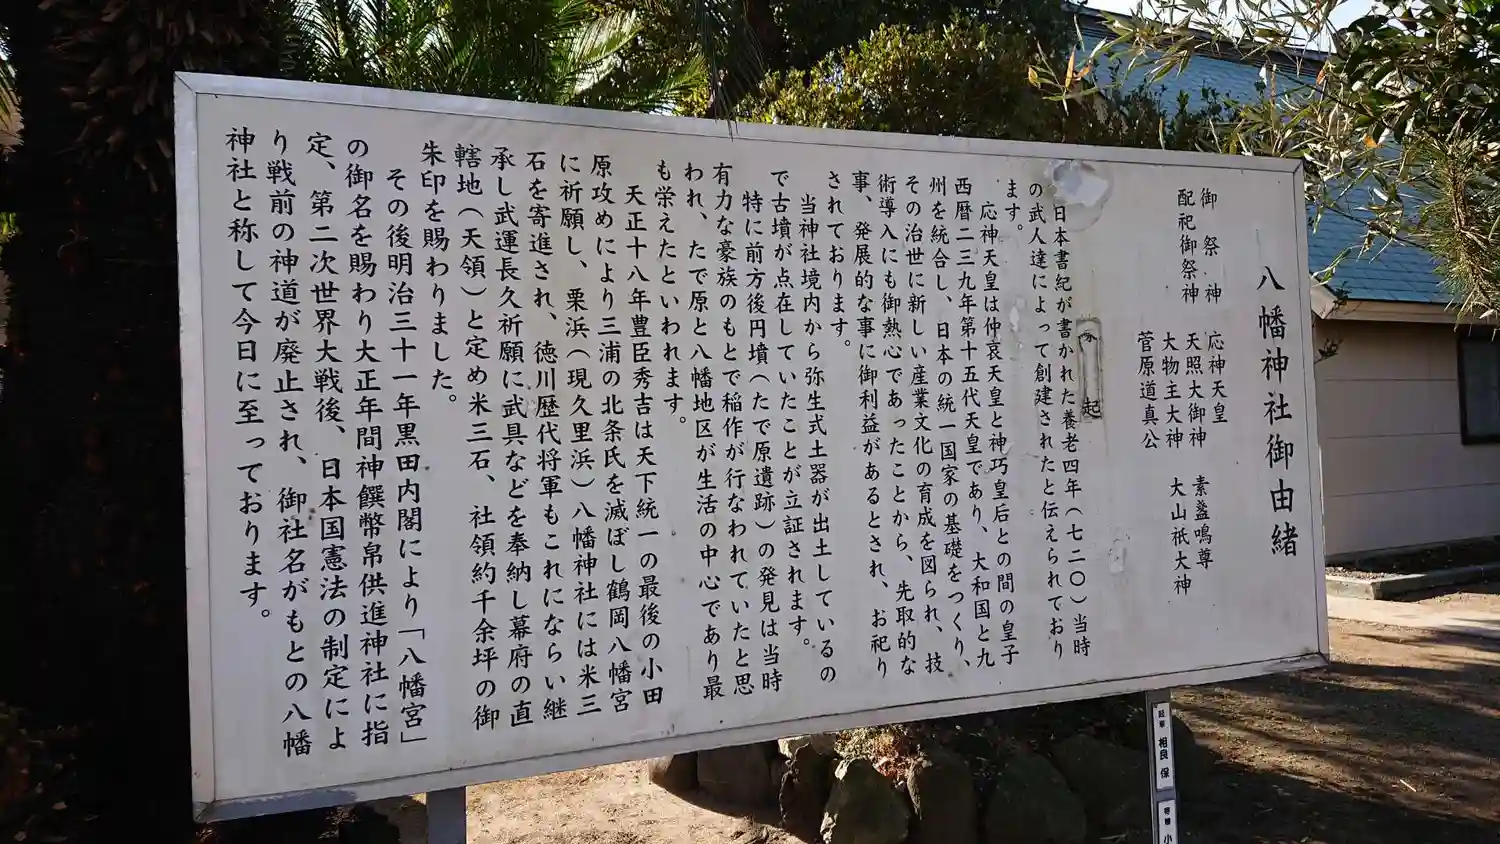 八幡神社御由緒
御祭神 応神天皇 素盞嗚尊
配祀御祭神 天照大御神
大物主大神 大山祇大神
菅原道真公
起
日本書紀が書かれた養老四年(七二〇)当時
の武人達によって創建されたと伝えられており
ます。
応神天皇は仲哀天皇と神巧皇后との間の皇子
西暦二三九年第十五代天皇であり、大和国と九
州を統合し、日本の統一国家の基礎をつくり、
その治世に新しい産業文化の育成を図られ、技
術導入にも御熱心であったことから、先取的な
事、発展的な事に御利益があるとされ、お祀り
されております。
当神社境内から弥生式土器が出土しているの
で古墳が点在していたことが立証されます。
特に前方後円墳(たで原遺跡)の発見は当時
有力な豪族のもとで稲作が行なわれていたと思
われ、たで原と八幡地区が生活の中心であり最
も栄えたといわれます。
天正十八年豊臣秀吉は天下統一の最後の小田
原攻めにより三浦の北条氏を滅ぼし鶴岡八幡宮
に祈願し、栗浜(現久里浜)八幡神社には米三
石を寄進され、徳川歴代将軍もこれにならい継
承し武運長久祈願に武具などを奉納し幕府の直
轄地(天領)と定め米三石、社領約千余坪の御
朱印を賜わりました。
その後明治三十一年黒田内閣により「八幡宮」
の御名を賜わり大正年間神饌幣帛供進神社に指
定、第二次世界大戦後、日本国憲法の制定によ
り戦前の神道が廃止され、御社名がもとの八幡
神社と称して今日に至っております。
相良 保
小